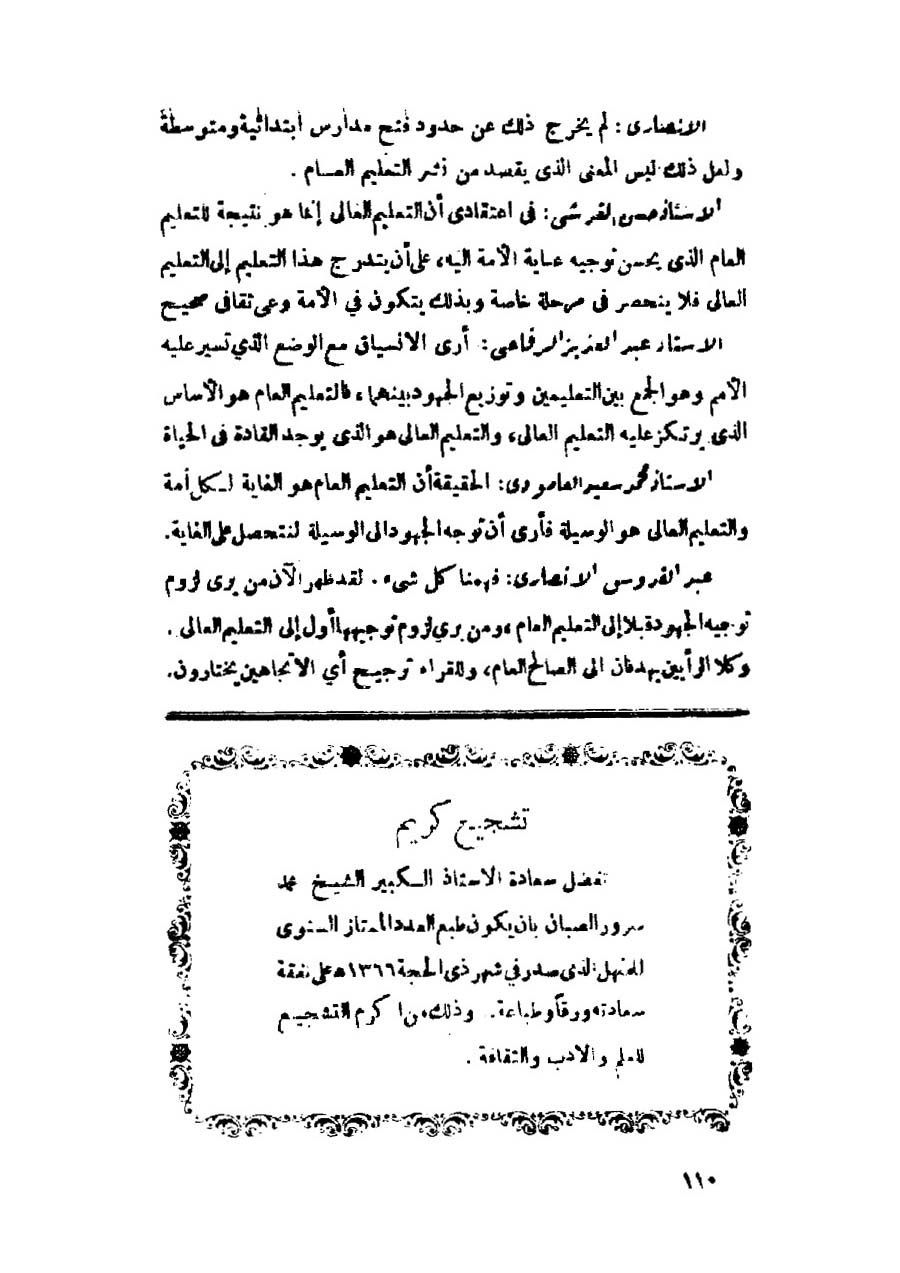 الانصارى : لم يخرج ذلك عن حدود فتح مدارس ابتدائية ومتوسطة
ولعل ذلك ليس المعنى الذى يقصد من نشر التعليم العـام .
الاستاذ حسن القرشى : فى اعتقادى أن التعليم العالى إنما هو نتيجة للتعليم
العام الذى يحسن توجيه عناية الأمة اليه، على أن يتدرج هذا التعليم إلى التعليم
العالى فلا ينحصر فى مرحلة خاصة وبذلك يتكون في الأمة وعى ثقافى صحيح
الاستاذ عبد العزيز الرفاعى : أرى الانسياق مع الوضع الذي تسير عليه
الأمم وهو الجمع بين التعليمين وتوزيع الجهود بينهما ، فالتعليم العام هو الأساس
الذى يرتكز عليه التعليم العالى، والتعليم العالى هو الذى يوجد القادة فى الحياة
الاستاذ محمد سعيد العامودى : الحقيقة أن التعليم العام هو الغاية لـكل أمة
والتعليم العالى هو الوسيلة فأرى أن توجه الجهود الى الوسيلة لنتحصل على الغاية .
عبد القدوس الانصارى : فهمنا كل شىء . لقد ظهر الآن من يرى لزوم
توجيه الجهود قبلا إلى التعليم العام ، ومن يري لزوم توجيهها أول إلى التعليم العالى .
وكلا الرأيين يهدفان الى الصالح العام، وللقراء ترجيح أي الاتجاهين يختارون.
تشجيع كريم
تفضل سعادة الاستاذ الـكبير الشيخ محمد
سرور الصبان بان يكون طبع العدد الممتاز السنوى
للمنهل الذى صدر في شهر ذى الحجة ١٣٦٦ھ على نفقة
سعادته ورقاً وطباعة . وذلك من اكرم التشجيع
للعلم والادب والثقافة .
١١٠